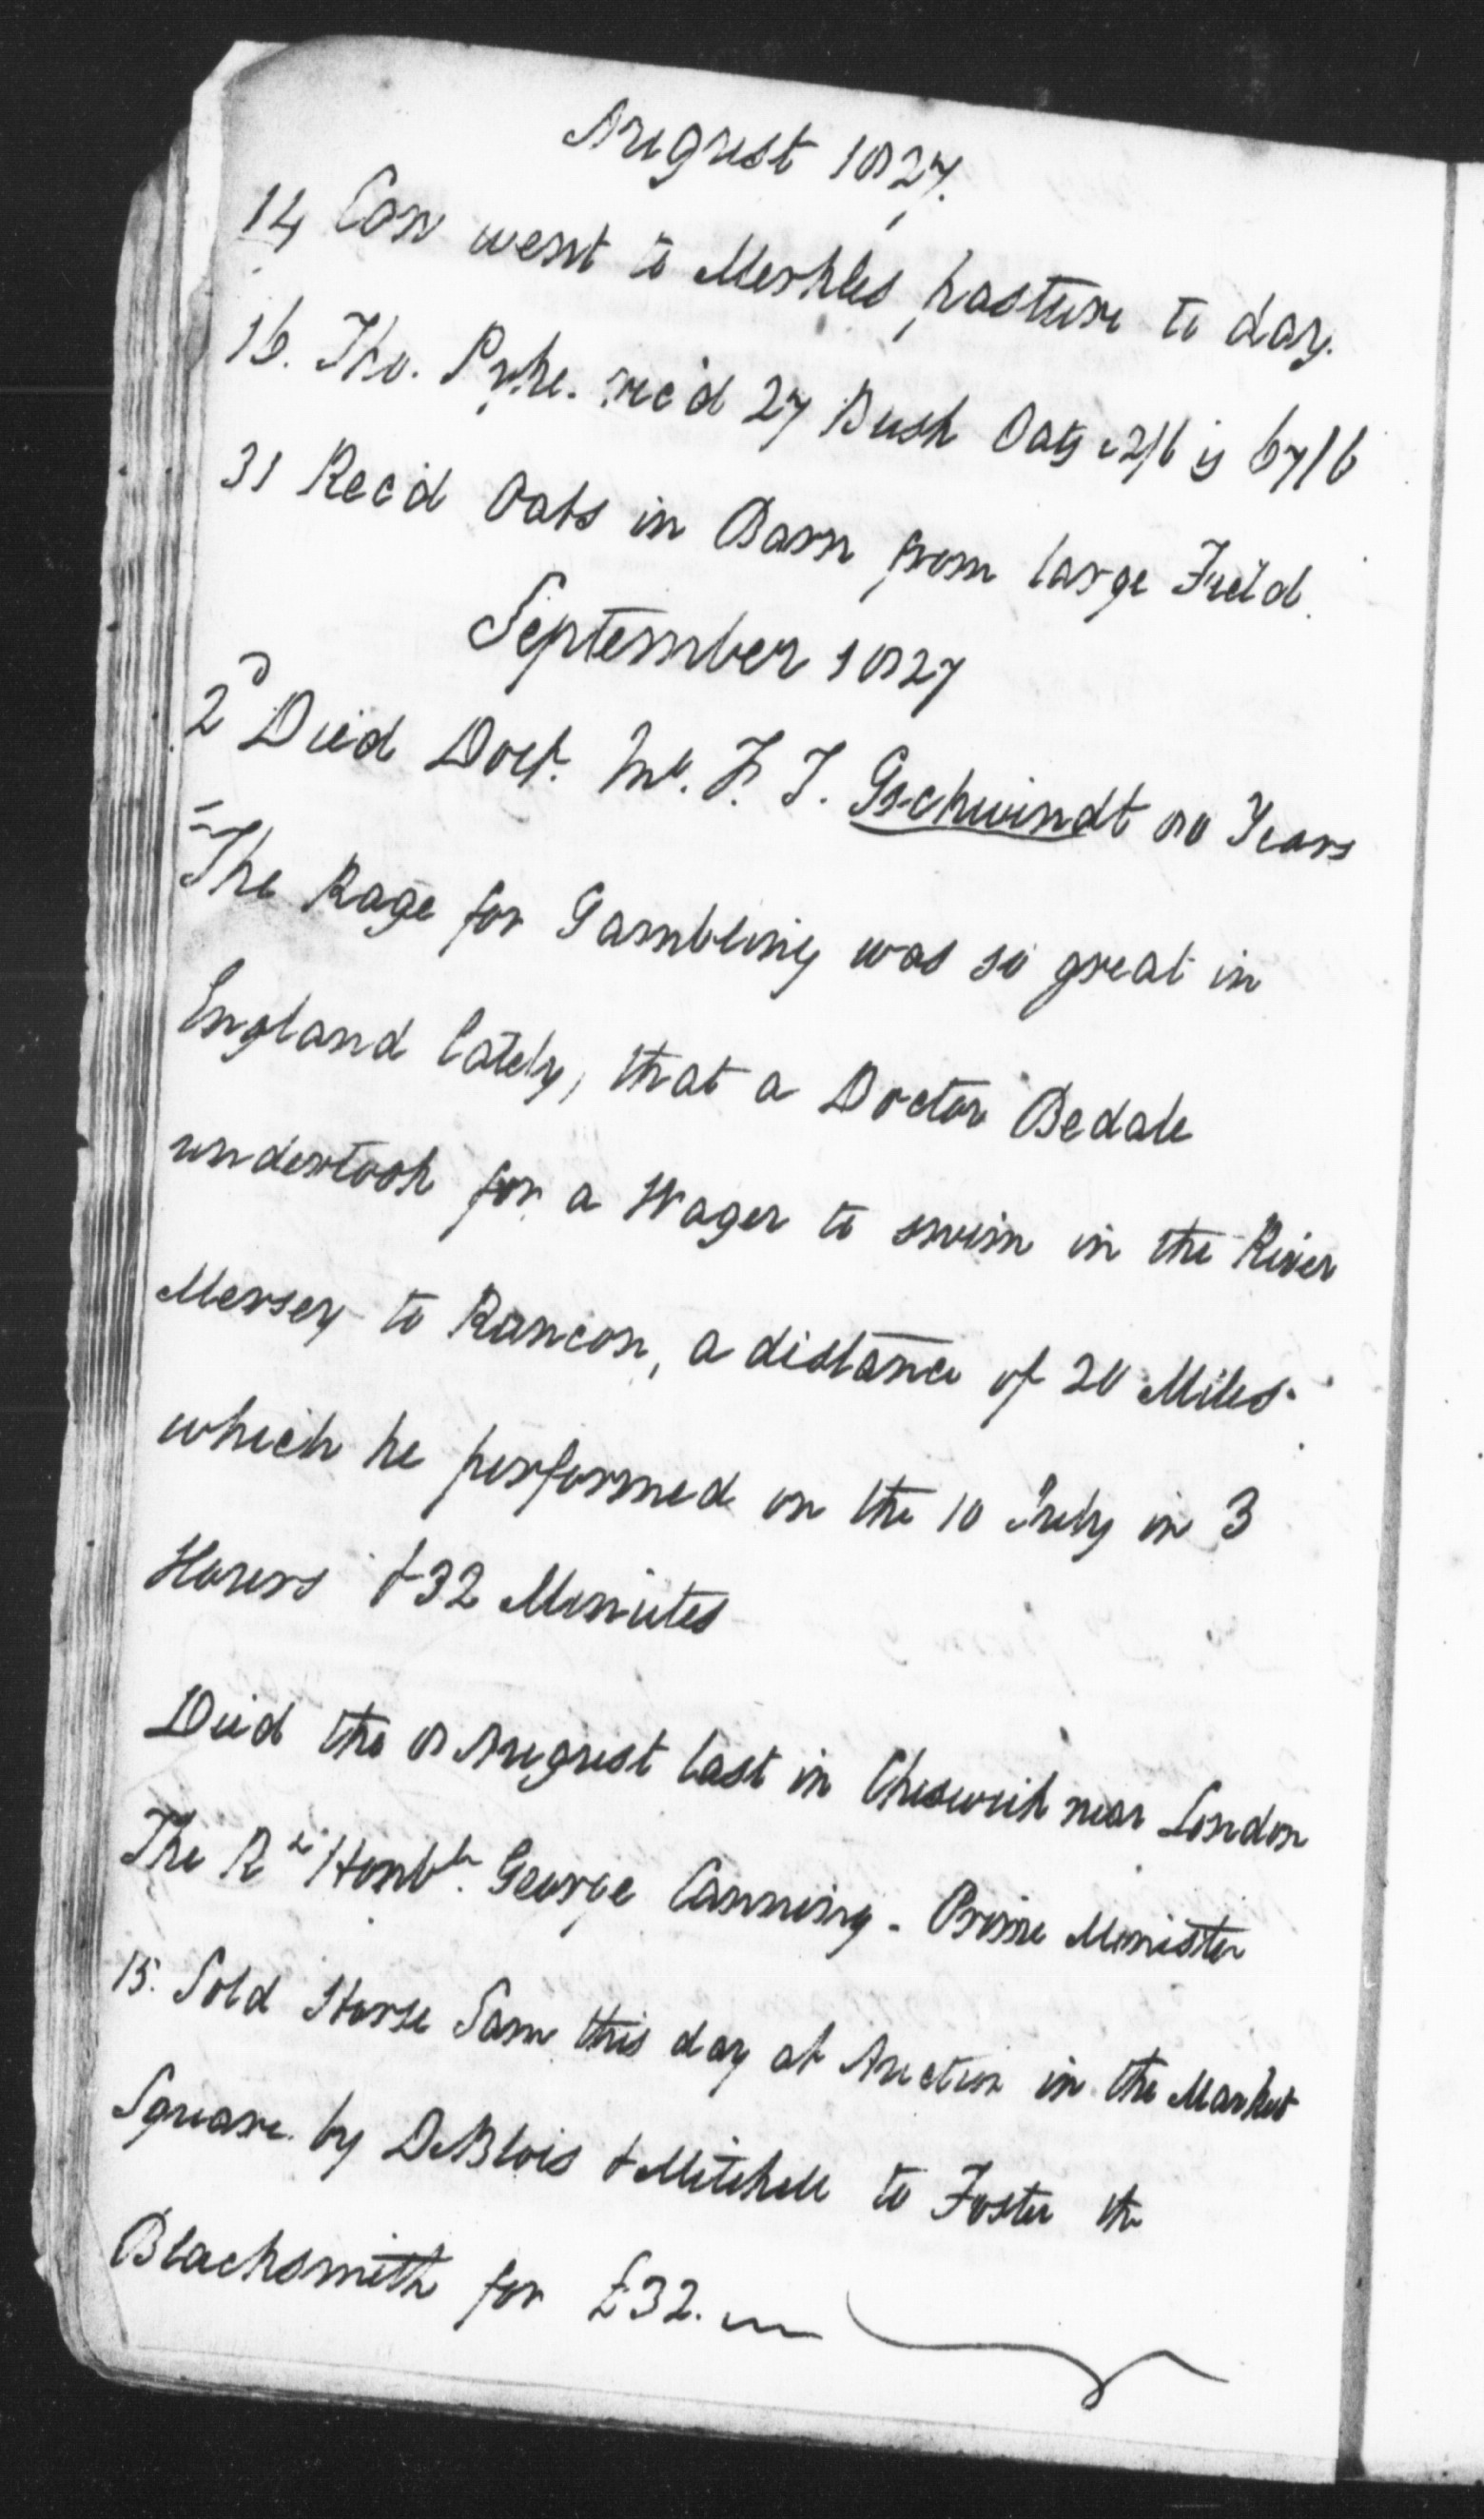 August 1827.
14 Cow went to Merkles pasture to day.
16. Tho. Pyke. rec'd 27 Bush Oats 2/6 is 67/6
31 Rec'd Oats in Barn from large Field.
September 1827
2d Died Doct. Mr. F. J. Gschwindt 80 Years
The Rage for Gambling was so great in
England lately, that a Doctor Bedale
undertook for a Wager to swim in the River
Mersey to Rancon, a distance of 20 Miles.
which he performed on the 10 July in 3
Hours & 32 Minutes
Died the 8 August last in Cheswick near London
The Rt Honble. George Canning - Prime Minister
15. Sold Horse Sam this day at Auction in the Market
Square by DeBlois & Mitchell to Foster the
Blacksmith for £32.